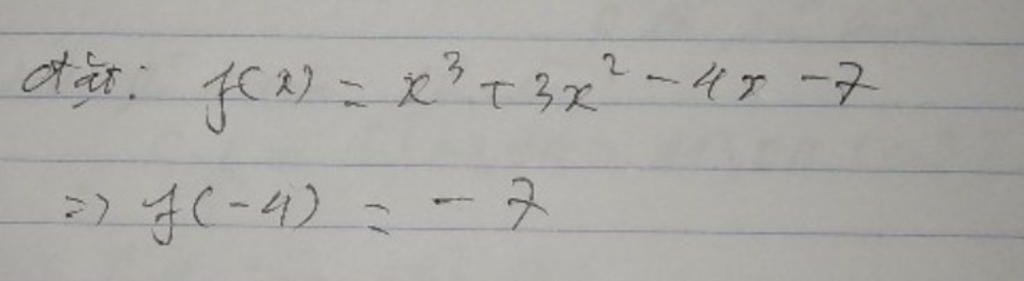 đặt: f(x) = x³ + 3x² - 4x - 7
=> f(-4) = -7